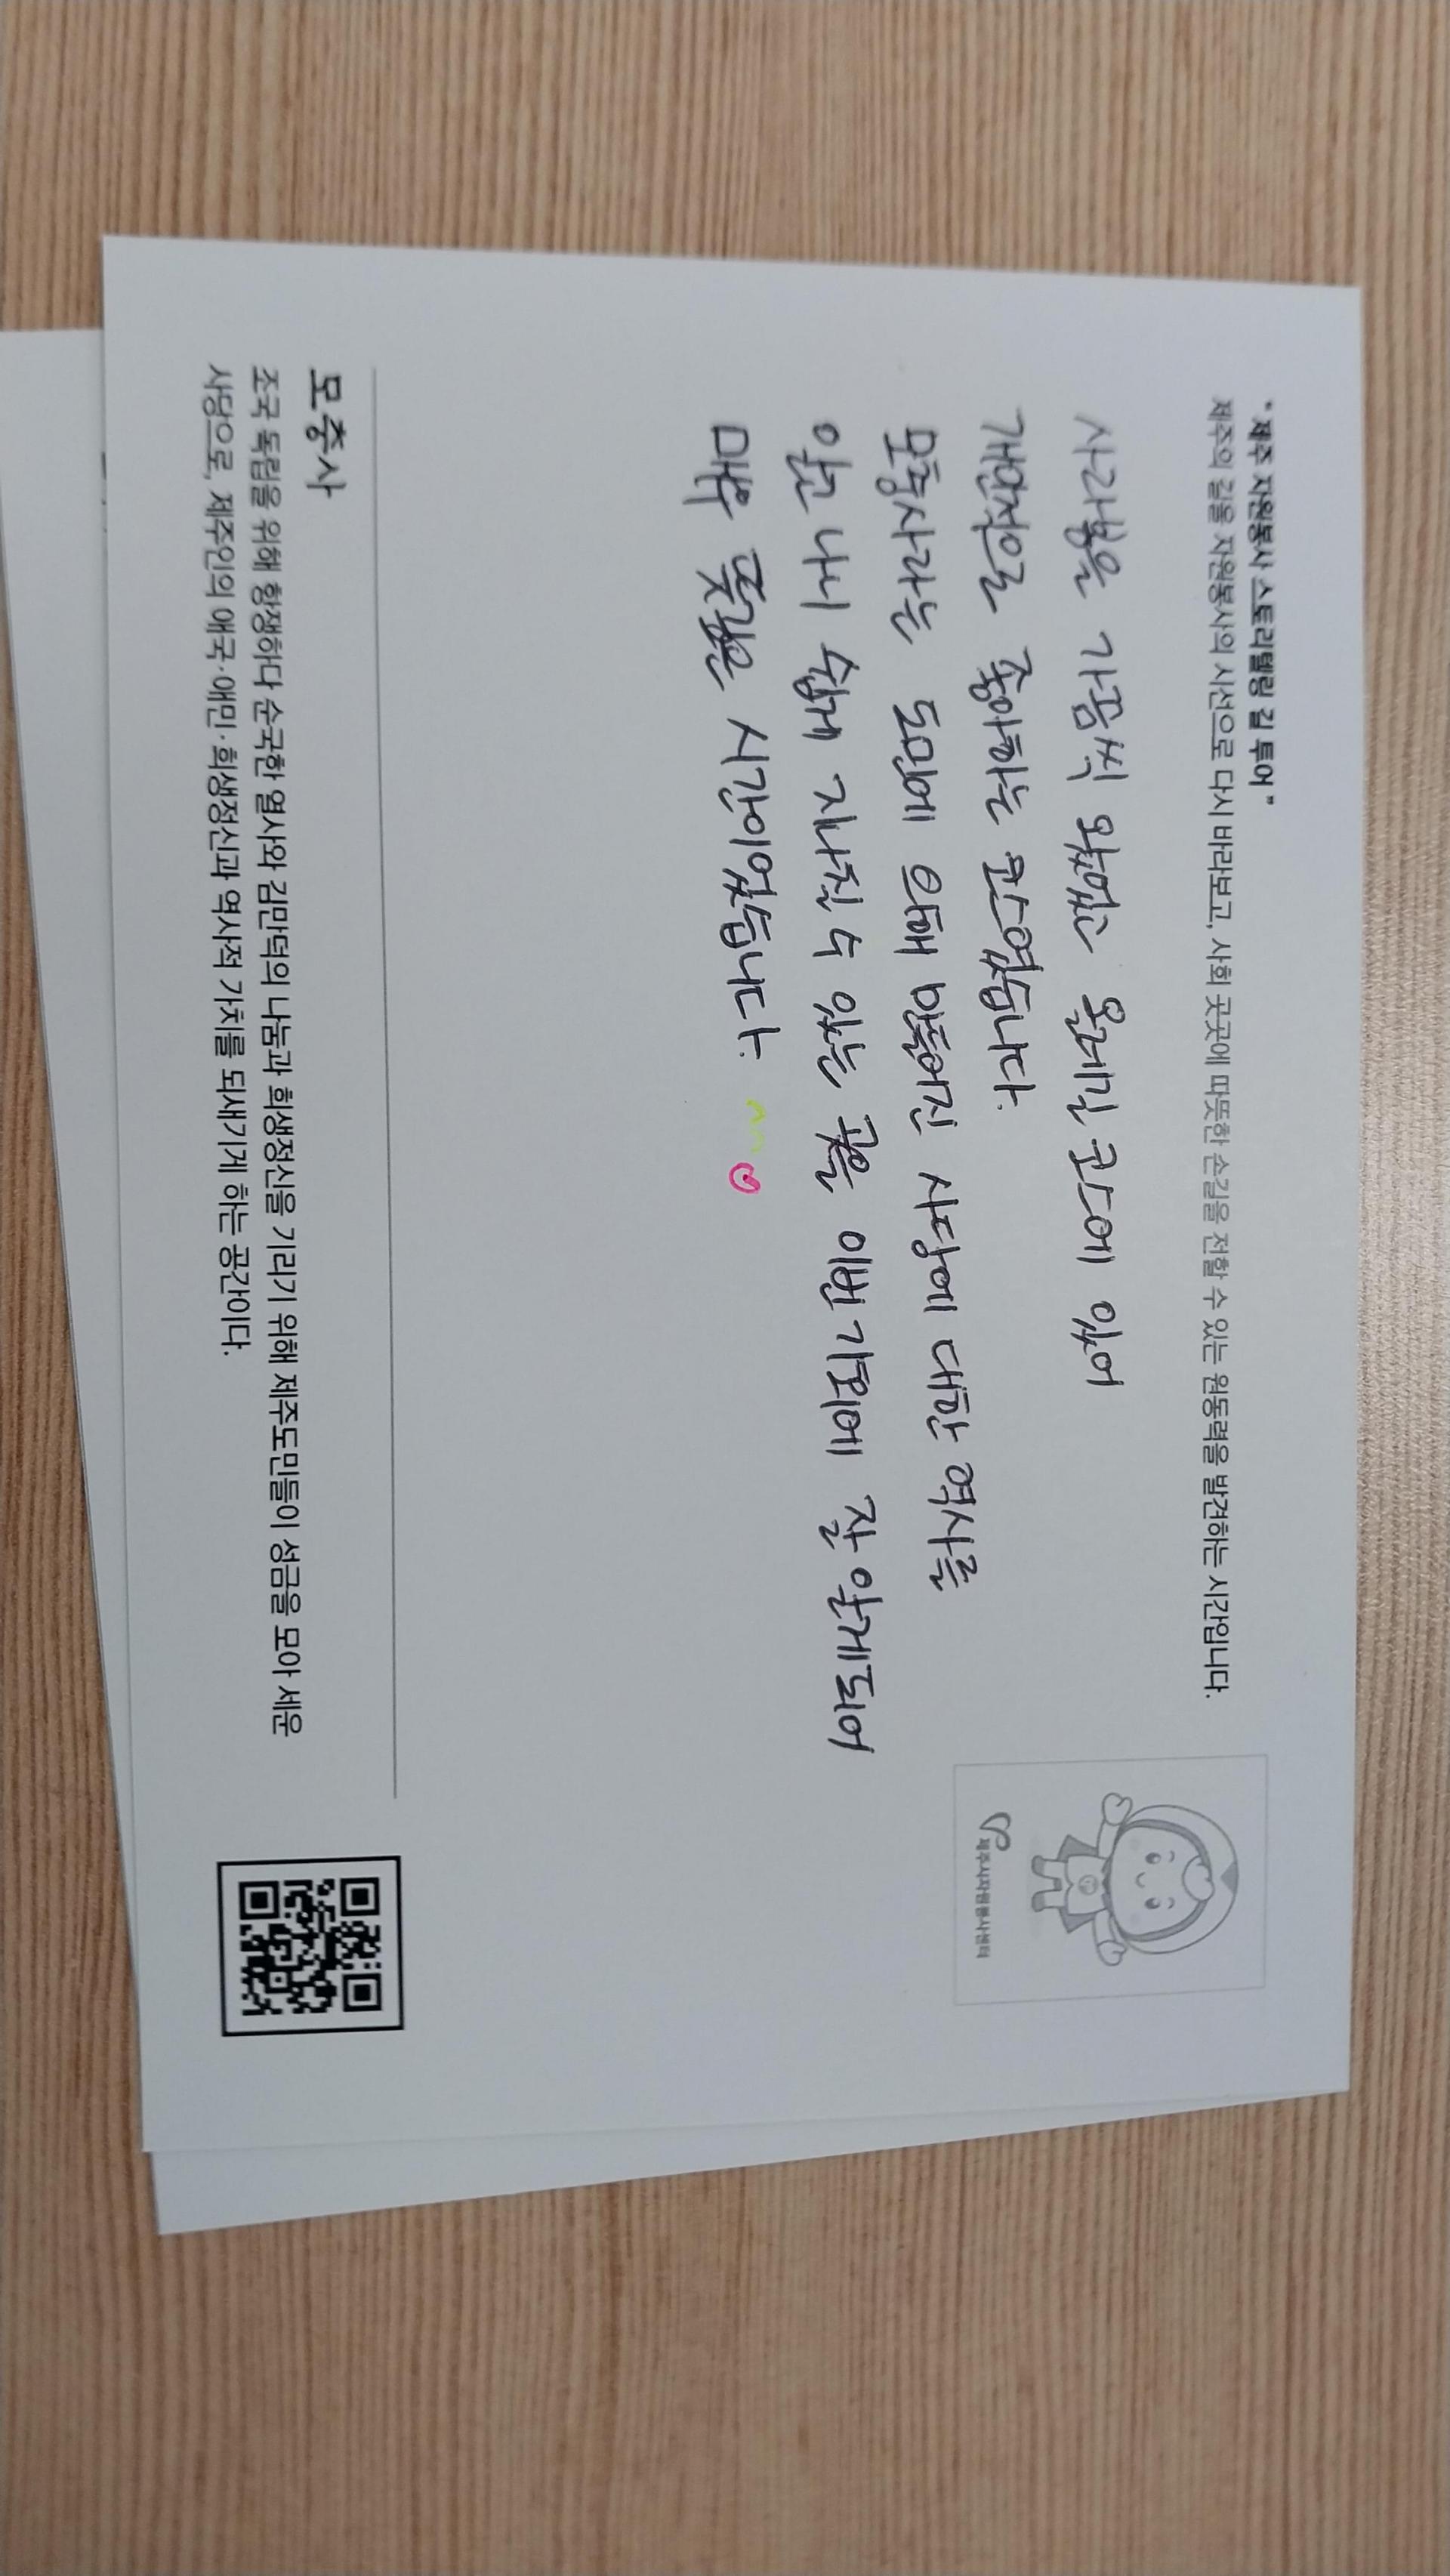 "제주 자원봉사 스토리텔링 길 투어"
제주의 길을 자원봉사의 시선으로 다시 바라보고, 사회 곳곳에 따뜻한 손길을 전할 수 있는 원동력을 발견하는 시간입니다.
제주시자원봉사센터
사라봉을 가끔씩 왔었는 올레길 코스에 있어
개인적으로 좋아하는 코스였습니다.
모충사라는 도민에 의해 만들어진 사당에 대한 역사를
알고 나니 쉽게 지나칠 수 있는 곳을 이번 기회에 잘 알게되어
매우 뜻깊은 시간이었습니다. ^^
모충사
조국 독립을 위해 항쟁하다 순국한 열사와 김만덕의 나눔과 희생정신을 기리기 위해 제주도민들이 성금을 모아 세운
사당으로, 제주인의 애국·애민·희생정신과 역사적 가치를 되새기게 하는 공간이다.